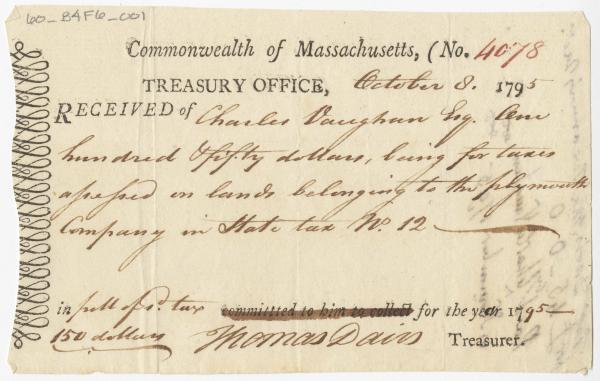 60_B4F6_001
Commonwealth of Massachusetts, (No. 4078
TREASURY OFFICE, October 8. 1795
RECEIVED of Charles Vaughan Esq. One
hundred & fifty dollars, being for taxes
assessed on lands belonging to the plymouth
Company in State tax No. 12
in full of sd. tax committed to him to collect for the year 1795
150 dollars Thomas Davis Treasurer.